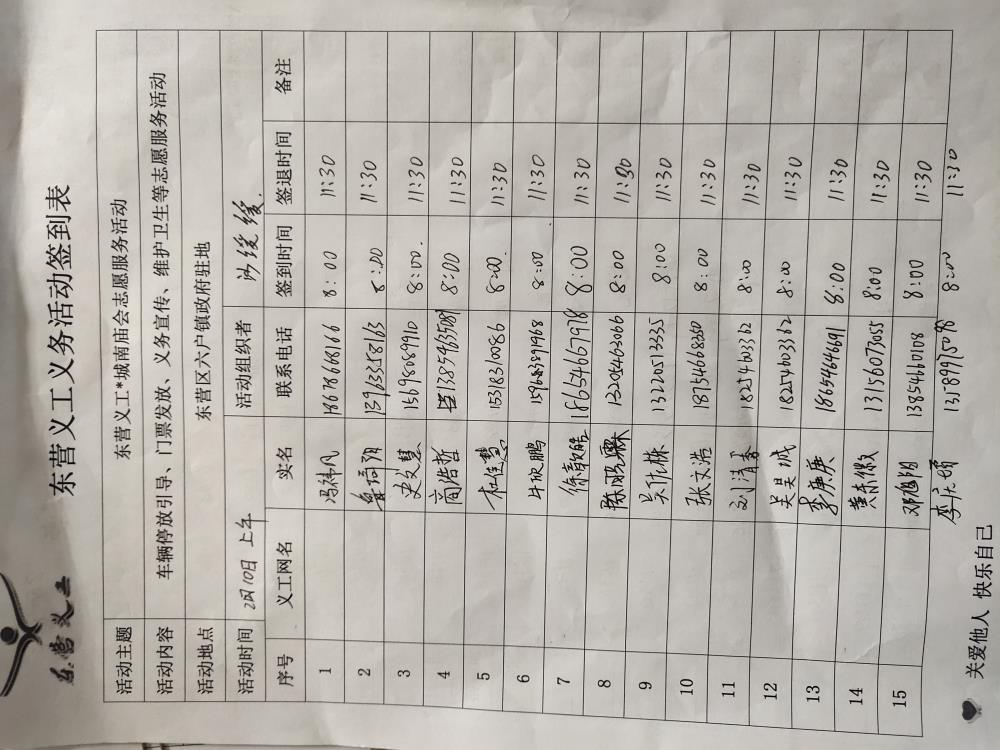 东营义工
东营义工义务活动签到表
活动主题 东营义工*城南庙会志愿服务活动
活动内容 车辆停放引导、门票发放、义务宣传、维护卫生等志愿服务活动
活动地点 东营区六户镇政府驻地
活动时间 2月10日 上午 活动组织者
序号 义工网名 实名 联系电话 签到时间 签退时间 备注
1 8:00 11:30
2 8:00 11:30
3 史文慧 15698089910 8:00 11:30
4 商浩哲 13854636508 8:00 11:30
5 杜佳慧 15318310086 8:00 11:30
6 牛欣鹏 15968391968 8:00 11:30
7 18654667978 8:00 11:30
8 13205463066 8:00 11:30
9 13220513335 8:00 11:30
10 张文浩 8:00 11:30
11 刘清春 18254603362 8:00 11:30
12 吴昊城 18254603362 8:00 11:30
13 李庚庚 18654646691 8:00 11:30
14 13156073055 8:00 11:30
15 邓旭阳 13854660108 8:00 11:30
8:00 11:30
关爱他人 快乐自己